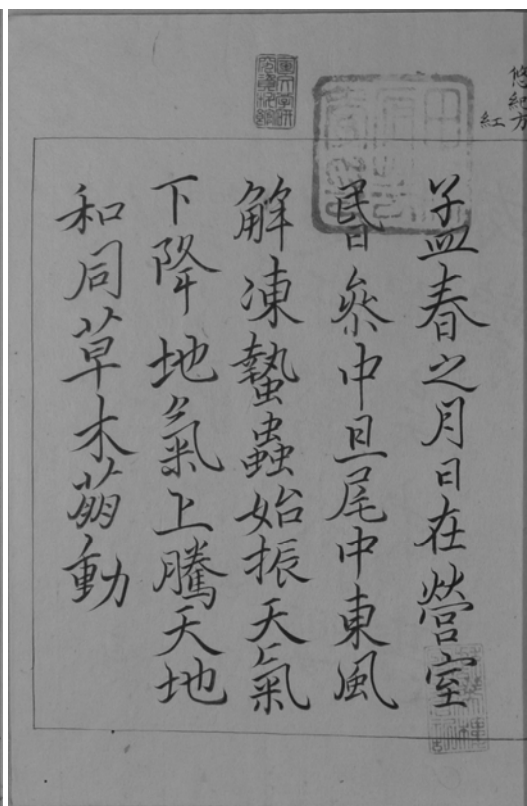 悠紀方
紅
孟春之月日在營室
昬參中旦尾中東風
解凍蟄蟲始振天氣
下降地氣上騰天地
和同草木萠動